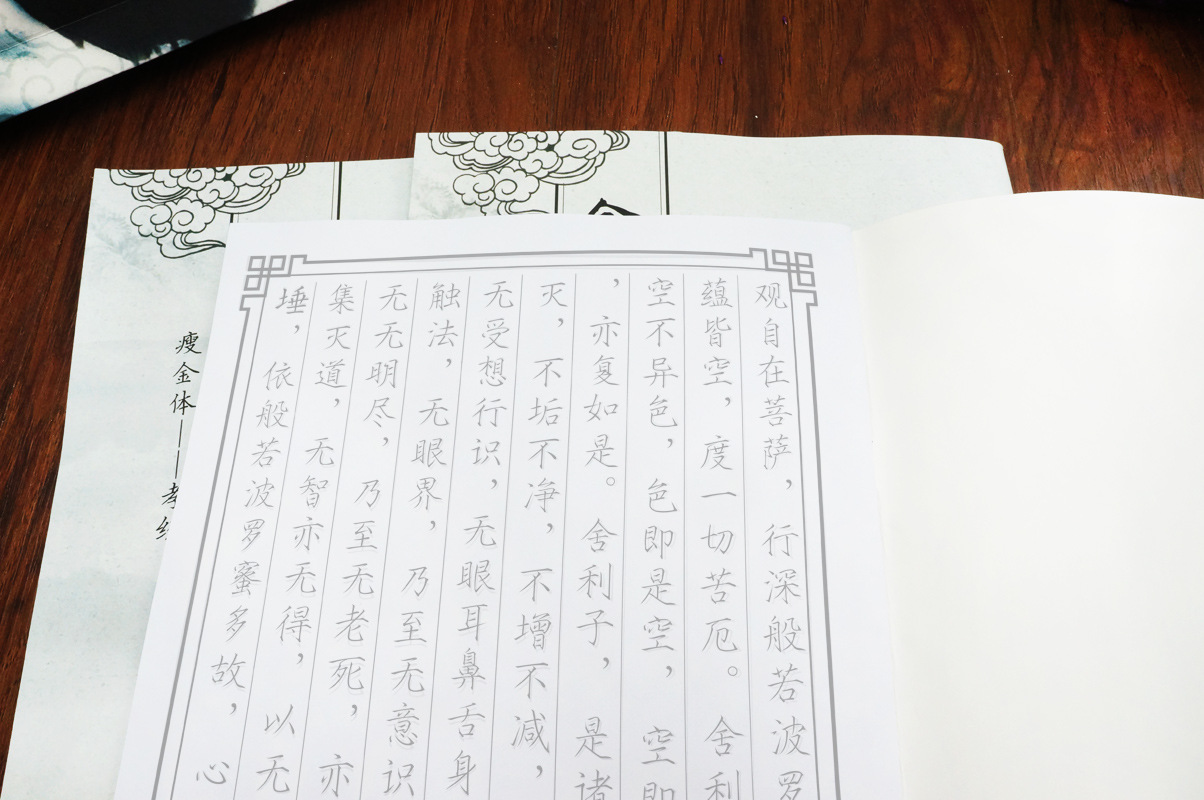 观自在菩萨，行深般若波罗
蕴皆空，度一切苦厄。舍利
空不异色，色即是空，空即
，亦复如是。舍利子，是诸
灭，不垢不净，不增不减，
无受想行识，无眼耳鼻舌身
触法，无眼界，乃至无意识
无无明尽，乃至无老死，亦
集灭道，无智亦无得，以无
埵，依般若波罗蜜多故，心
瘦金体——孝